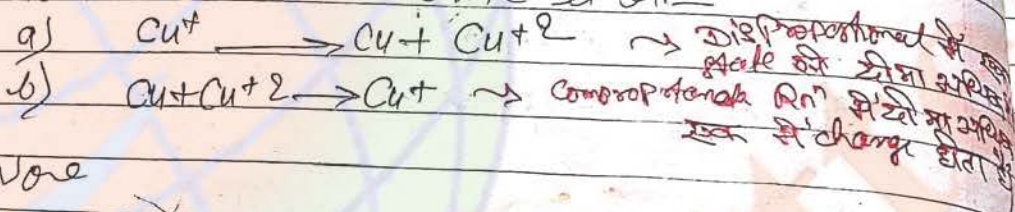 a) Cu+ ⟶ Cu + Cu+2 ⇝ Disproportional में एक
state को दो या अधिक
b) Cu + Cu+2 ⟶ Cu+ ⇝ Comproportenak Rn में दो या अधिक
एक में change होता है